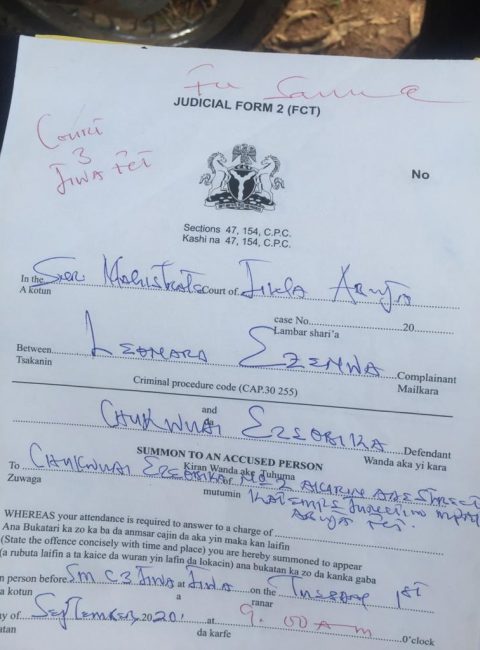 For Service
JUDICIAL FORM 2 (FCT)
Court
3
Jiwa FCT
No
Sections 47, 154, C.P.C.
Kashi na 47, 154, C.P.C.
In the Snr Magistrate Court of Jiwa Abuja
A kotun
case No. 20
Lambar shari'a
Between Leonard Ezenwa Complainant
Tsakanin Mailkara
Criminal procedure code (CAP.30 255)
and
Chukwudi Ezeobika Defendant
Wanda aka yi kara
SUMMON TO AN ACCUSED PERSON
Kiran Wanda ake Tuhuma
To Chukwudi Ezeobika of Street
Zuwaga mutumin Junction
Abuja FCT.
WHEREAS your attendance is required to answer to a charge of
Ana Bukatari ka zo ka ba da anmsar cajin da aka yin maka kan laifin
(State the offence concisely with time and place) you are hereby summoned to appear
(a rubuta laifin a ta kaice da wuran yin lafin da lokacin) ana bukatan ka zo da kanka gaba
n person before SM C3 Jiwa at Jiwa on the Tuesday 1st
a kotun a ranar
ay of September 2020 at 9.00 am O'clock
atan da karfe